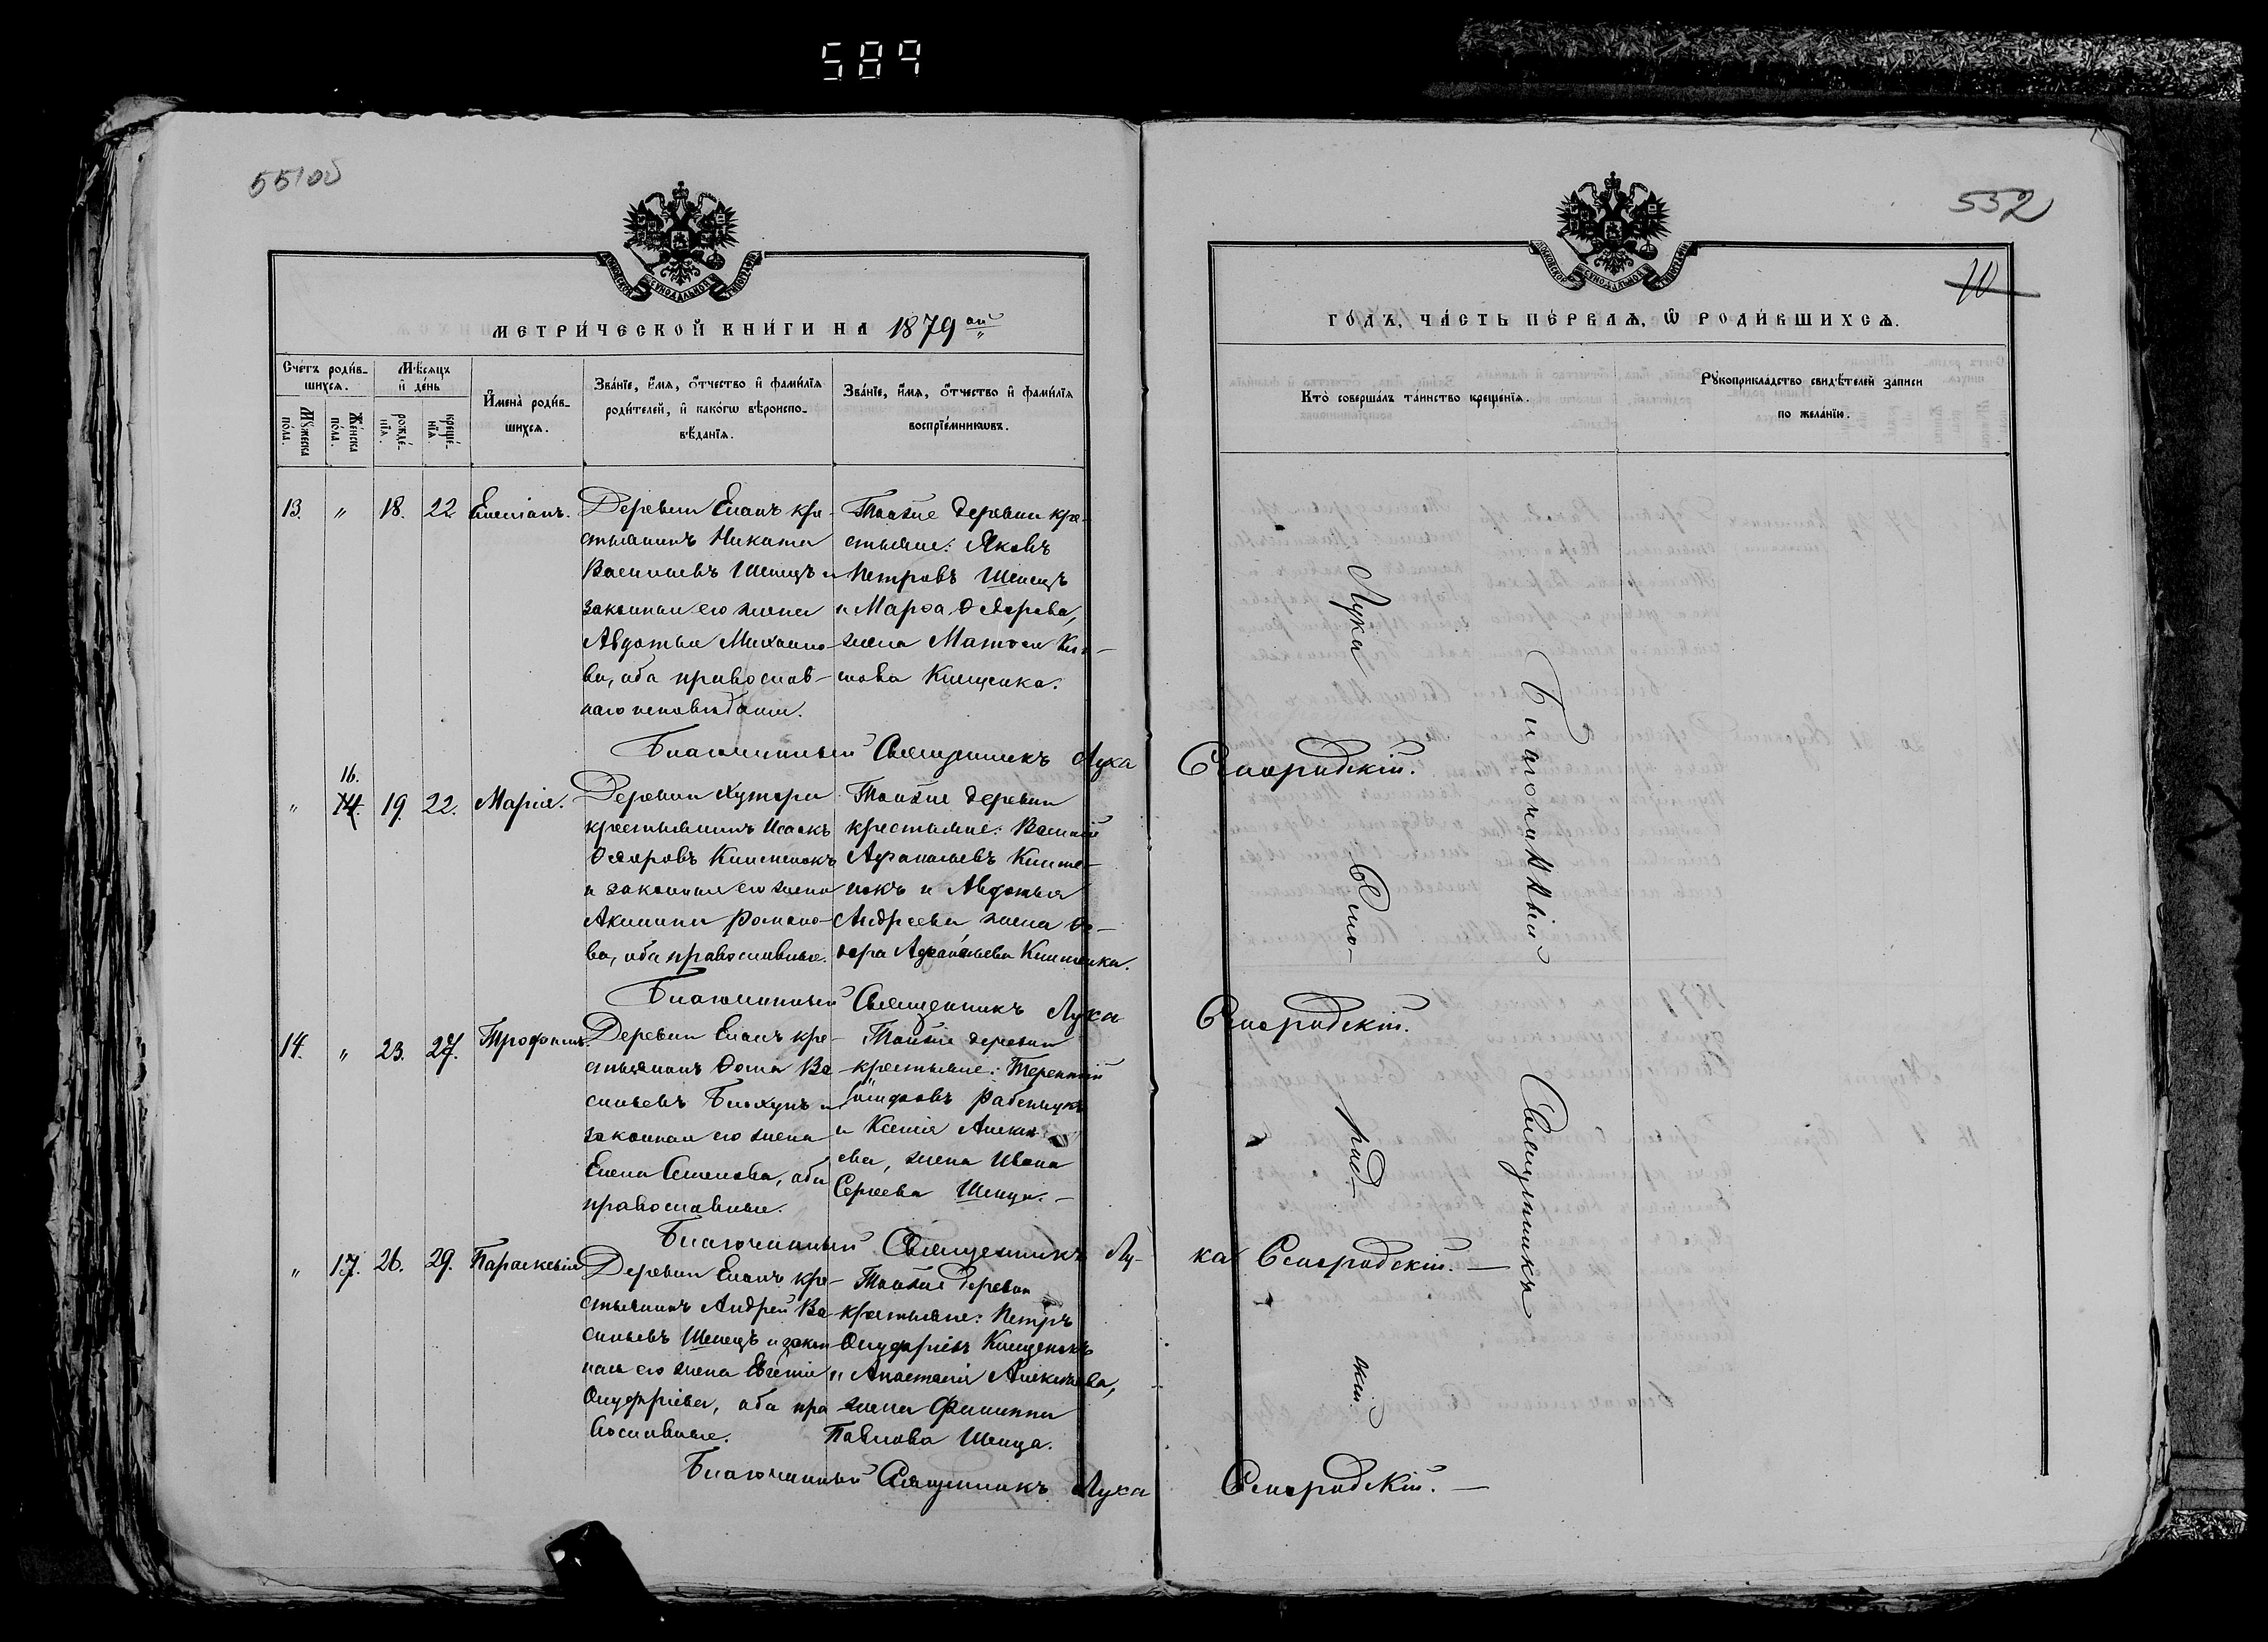 589
551об
532
10
МЕТРИ́ЧЕСКОЙ КНИ́ГИ НА 1879 ой
ГО́ДЪ, ЧА́СТЬ ПЕ́РВАѦ, Ѿ РОДИ́ВШИХСѦ.
Сче́тъ роди́в-
шихсѧ.
Мѣ́сѧцъ
и҆ де́нь
Мꙋ́жеска
по́ла.
Же́нска
по́ла.
рожде́-
нїѧ.
креще́-
нїѧ.
И҆мена̀ роди́в-
шихсѧ.
Зва́нїе, и҆́мѧ, ѻ҆́тчество и҆ фами́лїѧ
роди́телей, и҆ како́гѡ вѣроиспо-
вѣ́данїѧ.
Зва́нїе, и҆́мѧ, ѻ҆́тчество и҆ фами́лїѧ
воспрїе́мникѡвъ.
Кто̀ соверша́лъ та́инство креще́нїѧ.
Рꙋкоприкла́дство свидѣ́телей записи
по жела́нїю.
13. " 18. 22
Деревни Еланъ кре-
стьянинъ Никита
Васильевъ Шпецъ и
законная его жена
Авдотья Михайло-
ва, оба православ-
наго исповѣданія.
Тойже деревни кре-
стьяне: Яковъ
Петровъ Шпецъ
и Марѳа Ѳедорова,
жена Матѳея
Клищенка.
Благочинный Священникъ Лука
16.
" 14. 19. 22. Марія.
Деревни Хутора
крестьянинъ Исаакъ
Ѳедоровъ
и законная его жена
Акилина Романо-
ва, оба православные.
Тойже деревни
крестьяне: Василій
Аѳанасьевъ
и Авдотья
Андреева жена Ѳе-
дора Аѳанасьева
Благочинный Священникъ Лука
14. " 23. 27. Трофимъ.
Деревни Еланъ кре-
стьянинъ Ѳома Ва-
сильевъ и
законная его жена
Елена Семенова, оба
православные.
Тойже деревни
крестьяне: Терентій
и Ксенія Алекс
ева, жена Ивана
Сергеева Шпеца. —
Благочинный Священникъ Лу-
ка
" 17. 26. 29. Параскевія
Деревни Еланъ кре-
стьянинъ Андрей Ва-
сильевъ Шпецъ и закон
ная его жена Евгенія
Онуфріева, оба пра
вославные.
Тойже деревни
крестьяне: Петръ
Онуфріевъ Клищенокъ
и Анастасія Алексѣева,
жена Филиппа
Павлова Шпеца.
Благочинный Священникъ Лука
Благочинный Священникъ
Лука